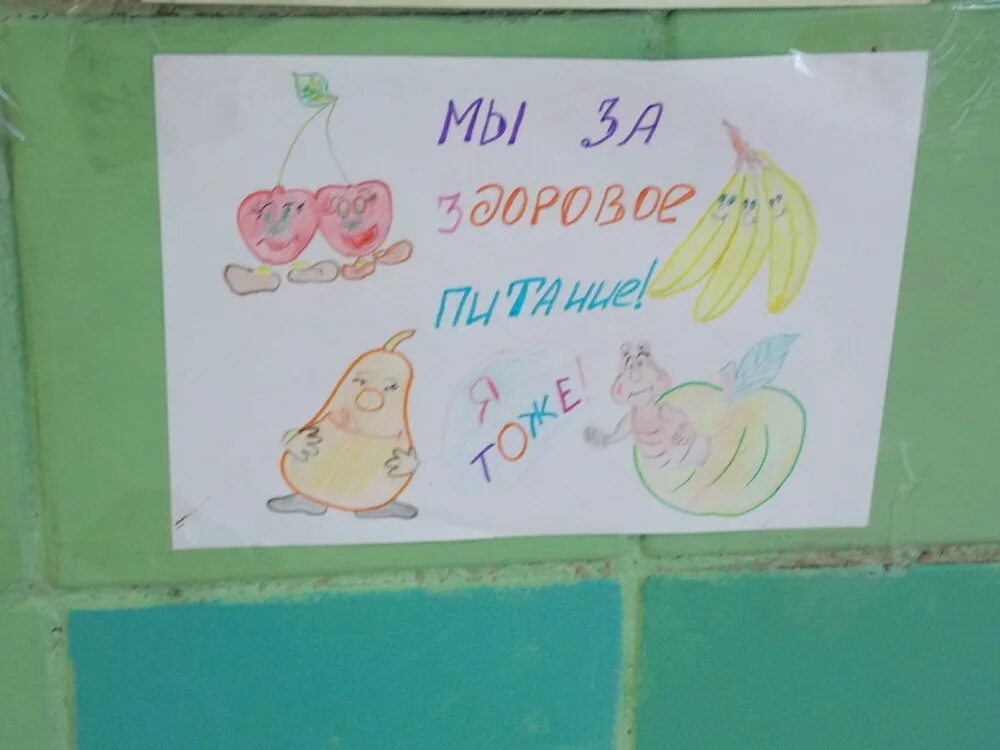 МЫ ЗА
ЗДОРОВОЕ
ПИТАНИЕ!
Я
ТОЖЕ!